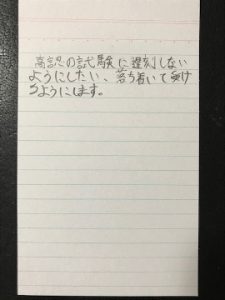 高認の試験に遅刻しない
ようにしたい、落ち着いて受け
るようにします。